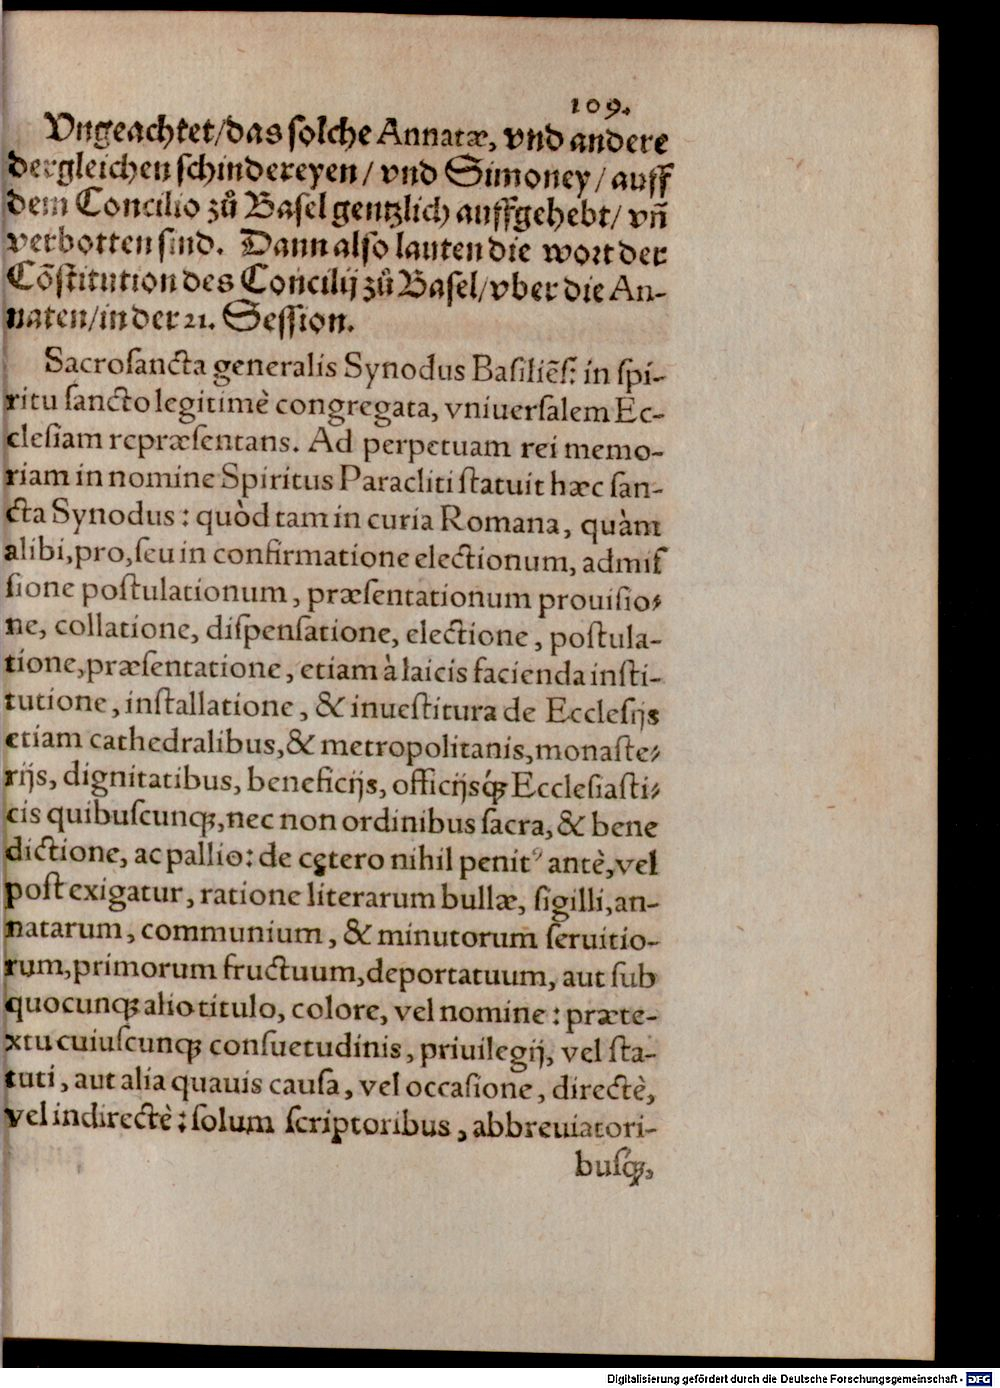 109.
Vngeachtet/das solche Annatæ, vnd andere
dergleichen schindereyen/ vnd Simoney/ auff
dem Concilio zů Basel gentzlich auffgehebt/ vñ
verbotten sind. Dann also lauten die wort der
Cõstitution des Concilij zů Basel/vber die An-
naten/in der 21. Session.
Sacrosancta generalis Synodus Basiliẽs: in spi-
ritu sancto legitimè congregata, vniuersalem Ec-
clesiam repræsentans. Ad perpetuam rei memo-
riam in nomine Spiritus Paracliti statuit hæc san-
cta Synodus: quòd tam in curia Romana, quàm
alibi, pro, seu in confirmatione electionum, admis
sione postulationum, præsentationum prouisio-
ne, collatione, dispensatione, electione, postula-
tione, præsentatione, etiam à laicis facienda insti-
tutione, installatione, & inuestitura de Ecclesijs
etiam cathedralibus, & metropolitanis, monaste-
rijs, dignitatibus, beneficijs, officijsq́ꝫ Ecclesiasti-
cis quibuscunqꝫ, nec non ordinibus sacra, & bene
dictione, ac pallio: de cętero nihil penitꝰ antè, vel
post exigatur, ratione literarum bullæ, sigilli, an-
natarum, communium, & minutorum seruitio-
rum, primorum fructuum, deportatuum, aut sub
quocunqꝫ alio titulo, colore, vel nomine: præte-
xtu cuiuscunqꝫ consuetudinis, priuilegij, vel sta-
tuti, aut alia quauis causa, vel occasione, directè,
vel indirectè: solum scriptoribus, abbreuiatori-
busq́ꝫ,
Digitalisierung gefördert durch die Deutsche Forschungsgemeinschaft - DFG